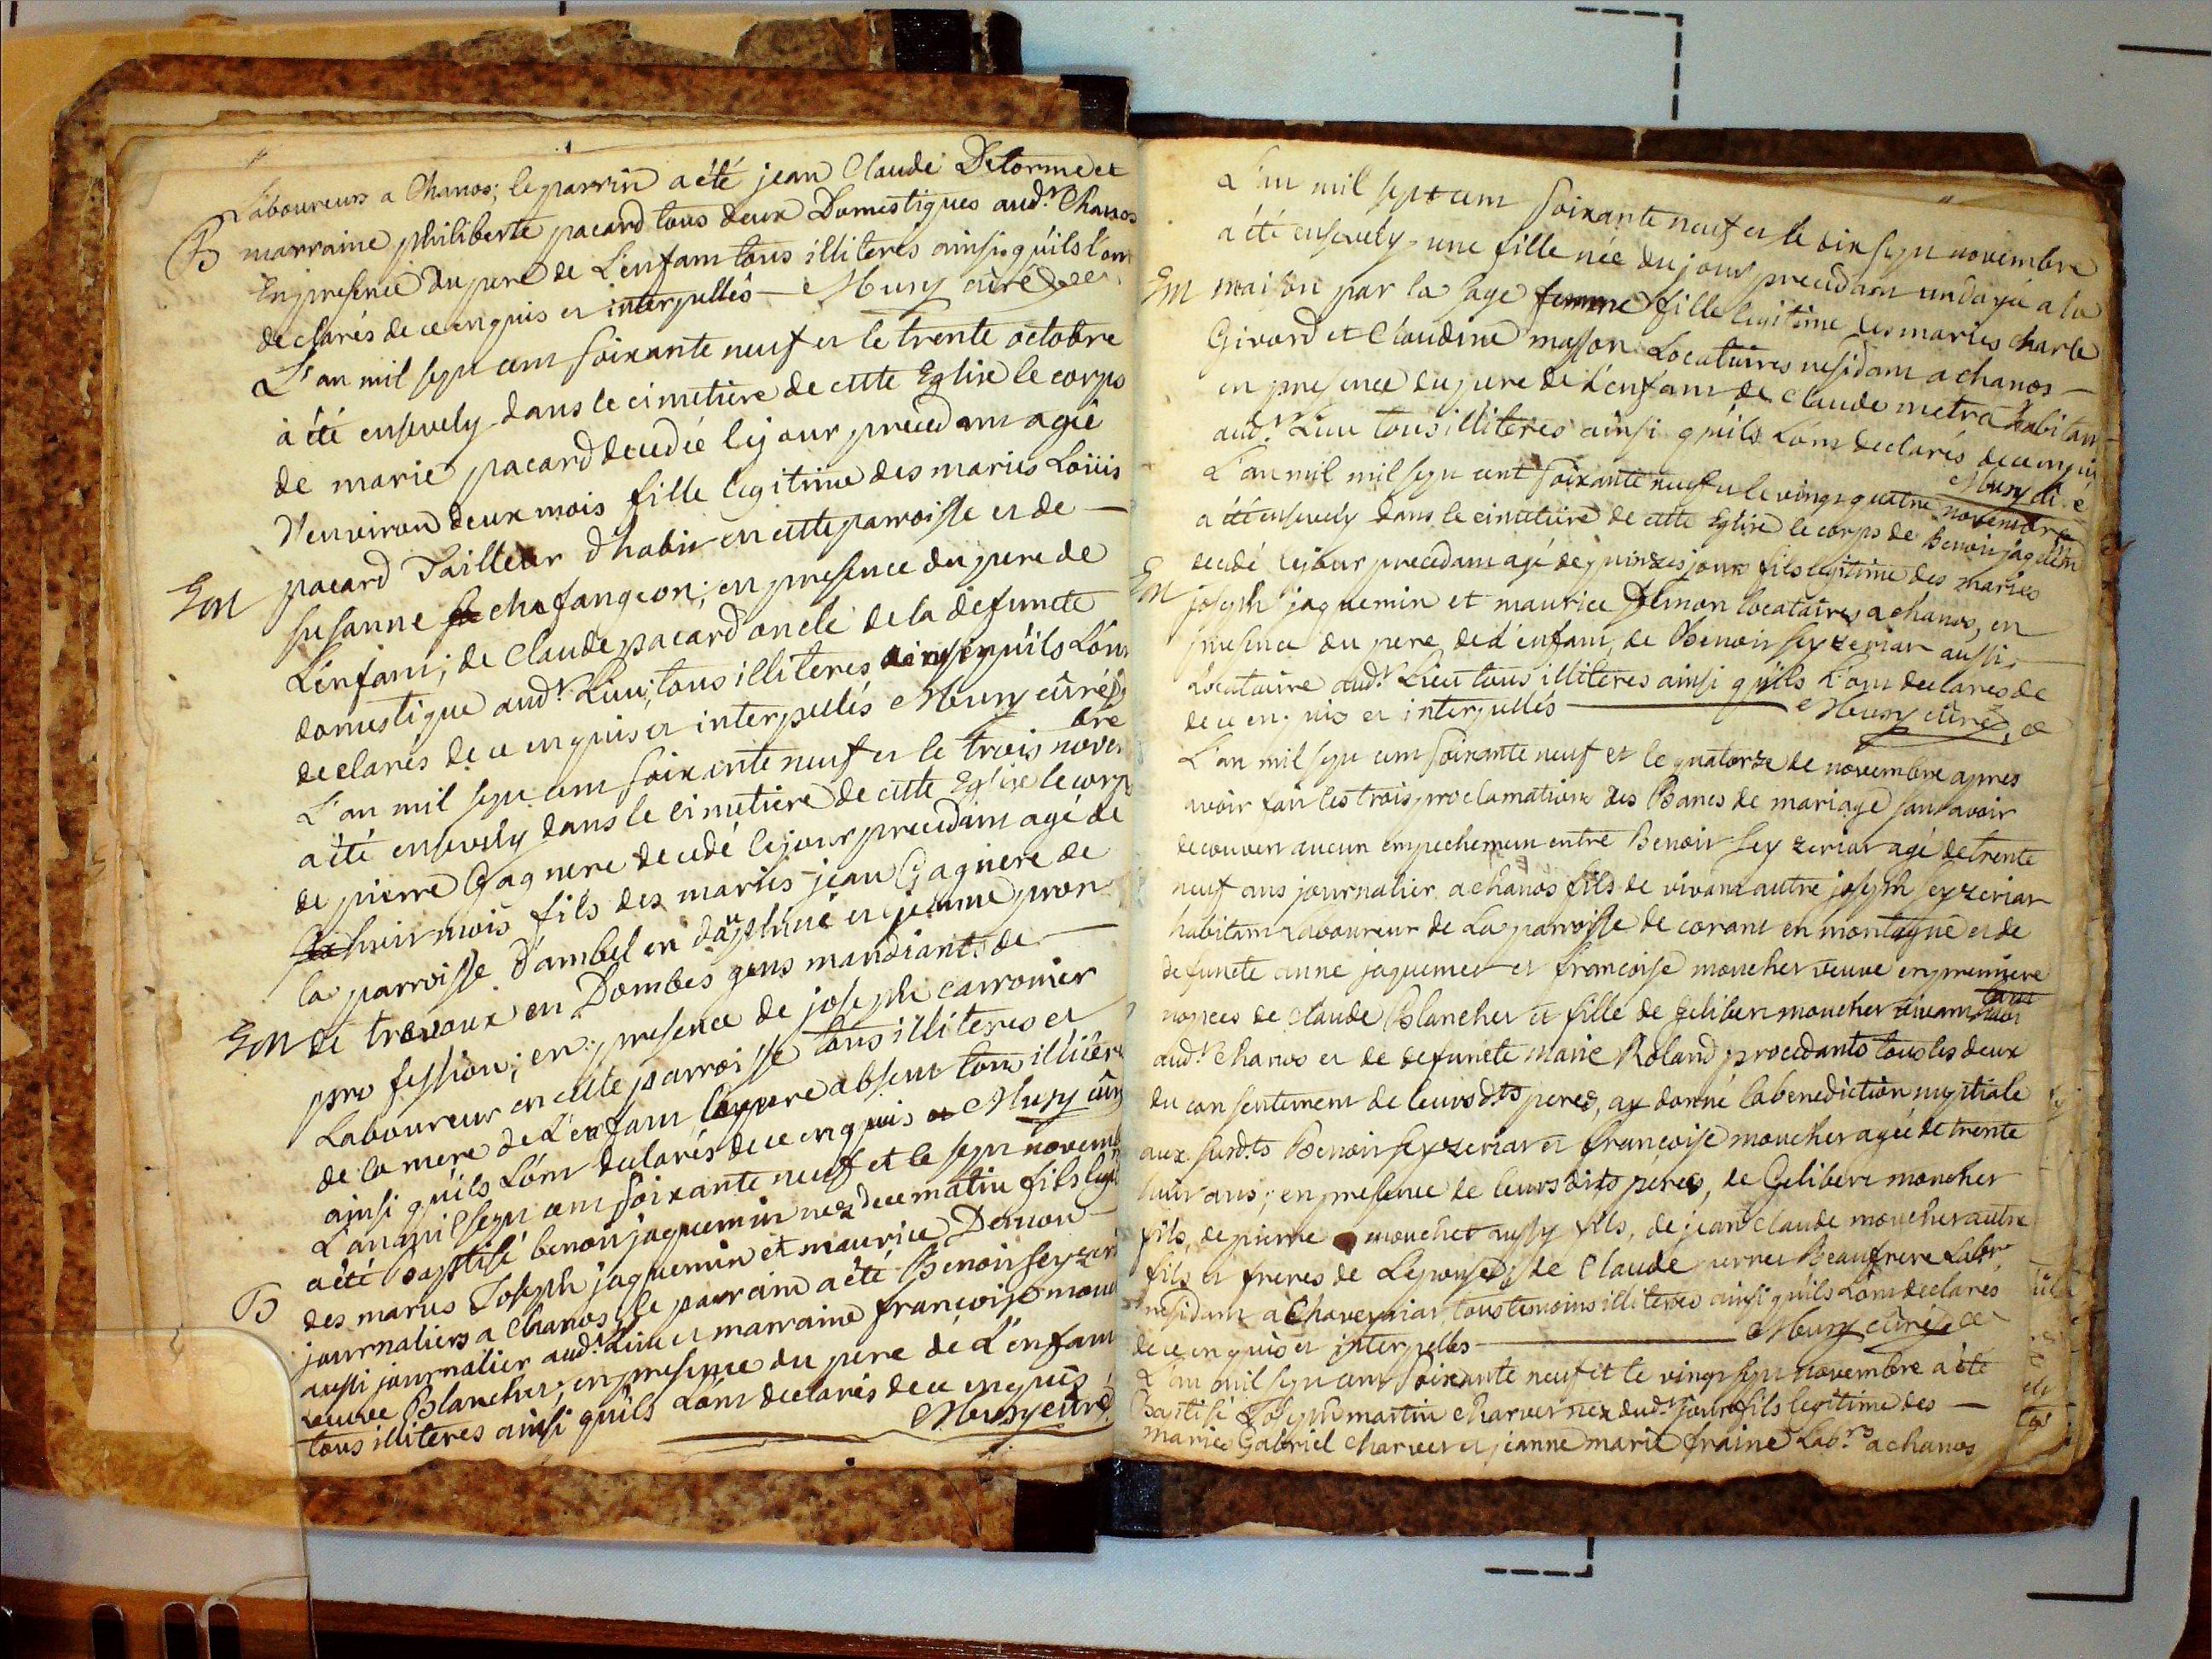 Laboureurs a Chanos; le parrin a été jean Claude Delorme et
B marraine philiberte pacard tous deux Domestiques aud.t Chanos
En presence du pere de L'enfant tous illiteres ainsi qu'ils l'ont
declarés de ce enquis et interpellés — Muny curé
L'an mil sept cent soixante neuf et le trente octobre
à été ensevely dans le cimetiere de cette Eglise le corps
de marie pacard decedée le jour precedant agée
d'environ deux mois fille legitime des maries Loüis
pacard Tailleur d'habit en cette parroisse et de —
Em susanne chafangeon; en presence du pere de
L'enfant; de Claude pacard oncle de la defuncte
domestique aud.t Lieu; tous illiteres ainsi qu'ils L'ont
declarés de ce enquis et interpellés Muny curé
L'an mil sept cent soixante neuf et le trois novembre
a été ensevely dans le cimetiere de cette Eglise le corps
de pierre Gagnere decedé le jour precedant agé de
huit mois fils des maries jean Gagnere de
la parroisse d'ambel en dauphiné et jeanne pron
Em de trevoux en Dombes gens mandiants de —
profession; en presence de joseph carronier
Laboureur en cette parroisse tous illiteres et
de la mere de L'enfant, le pere absent tous illiteres
ainsi qu'ils L'ont declarés de ce enquis et Muny curé
L'an mil sept cent soixante neuf et le sept novembre
a été baptisé benoit jaquemin nez de ce matin fils legit
B des maries Joseph jaquemin et maurice Demon
journaliers a Chanos, le parrain a été Benoit seyzeriat
aussi journalier aud.t Lieu et marraine francoise mouchet
veuve Blanchet; en presence du pere de L'enfant
tous illiteres ainsi qu'ils L'ont declarés de ce enquis
Muny curé
L'an mil sept cent soixante neuf et le dix sept novembre
a été ensevely une fille née du jour precedant ondoyé a la
Em maison par la sage femme fille legitime des maries charle
Girard et Claudine masson Locataires residant a chanos —
en presence du pere de L'enfant de Claude metra habitant
aud.t Lieu tous illiteres ainsi qu'ils L'ont declarés de ce enquis
Muny curé
L'an mil mil sept cent soixante neuf et le vingt quatre novembre
a été ensevely dans le cimetiere de cette Eglise le corps de Benoit jaquemin
decedé le jour precedant agé de quinze jours fils legitime des maries
Em joseph jaquemin et maurice Demon locataires a chanos, en
presence du pere de L'enfant, de Benoit seyzeriat aussi
Locataire aud.t Lieu tous illiteres ainsi qu'ils L'ont declarés de
de ce enquis et interpellés — Muny curé
L'an mil sept cent soixante neuf et le quatorze de novembre apres
avoir fait les trois proclamations des Bancs de mariage sans avoir
decouvert aucun empechement entre Benoit seyzeriat agé de trente
neuf ans journalier a chanos fils de vivant autre joseph seyzeriat
habitant Laboureur de La parroisse de corant en montagne et de
defuncte anne jaquemet et francoise mouchet veuve en premiere
nopces de claude Blanchet et fille de Gelibert mouchet vivant
aud.t Chanos et de defuncte marie Roland procedants tous les deux
du consentement de leurs d.ts peres, ay donné la benediction nuptiale
aux susd.ts Benoit seyzeriat et francoise mouchet agée de trente
huit ans; en presence de leurs dits peres, de Gelibert mouchet
fils, de pierre mouchet aussy fils, de jean claude mouchet autre
fils et freres de L'epouse, de Claude Beaufrere Lab.r
residant a Chaveyriat tous temoins illiteres ainsi qu'ils L'ont declarés
de ce enquis et interpellés — Muny curé
L'an mil sept cent soixante neuf et le vingt sept novembre a été
Baptisé Joseph martin charvet nez dud.t jour fils legitime des —
maries Gabriel charvet et jeanne marie fraine Lab.rs a chanos